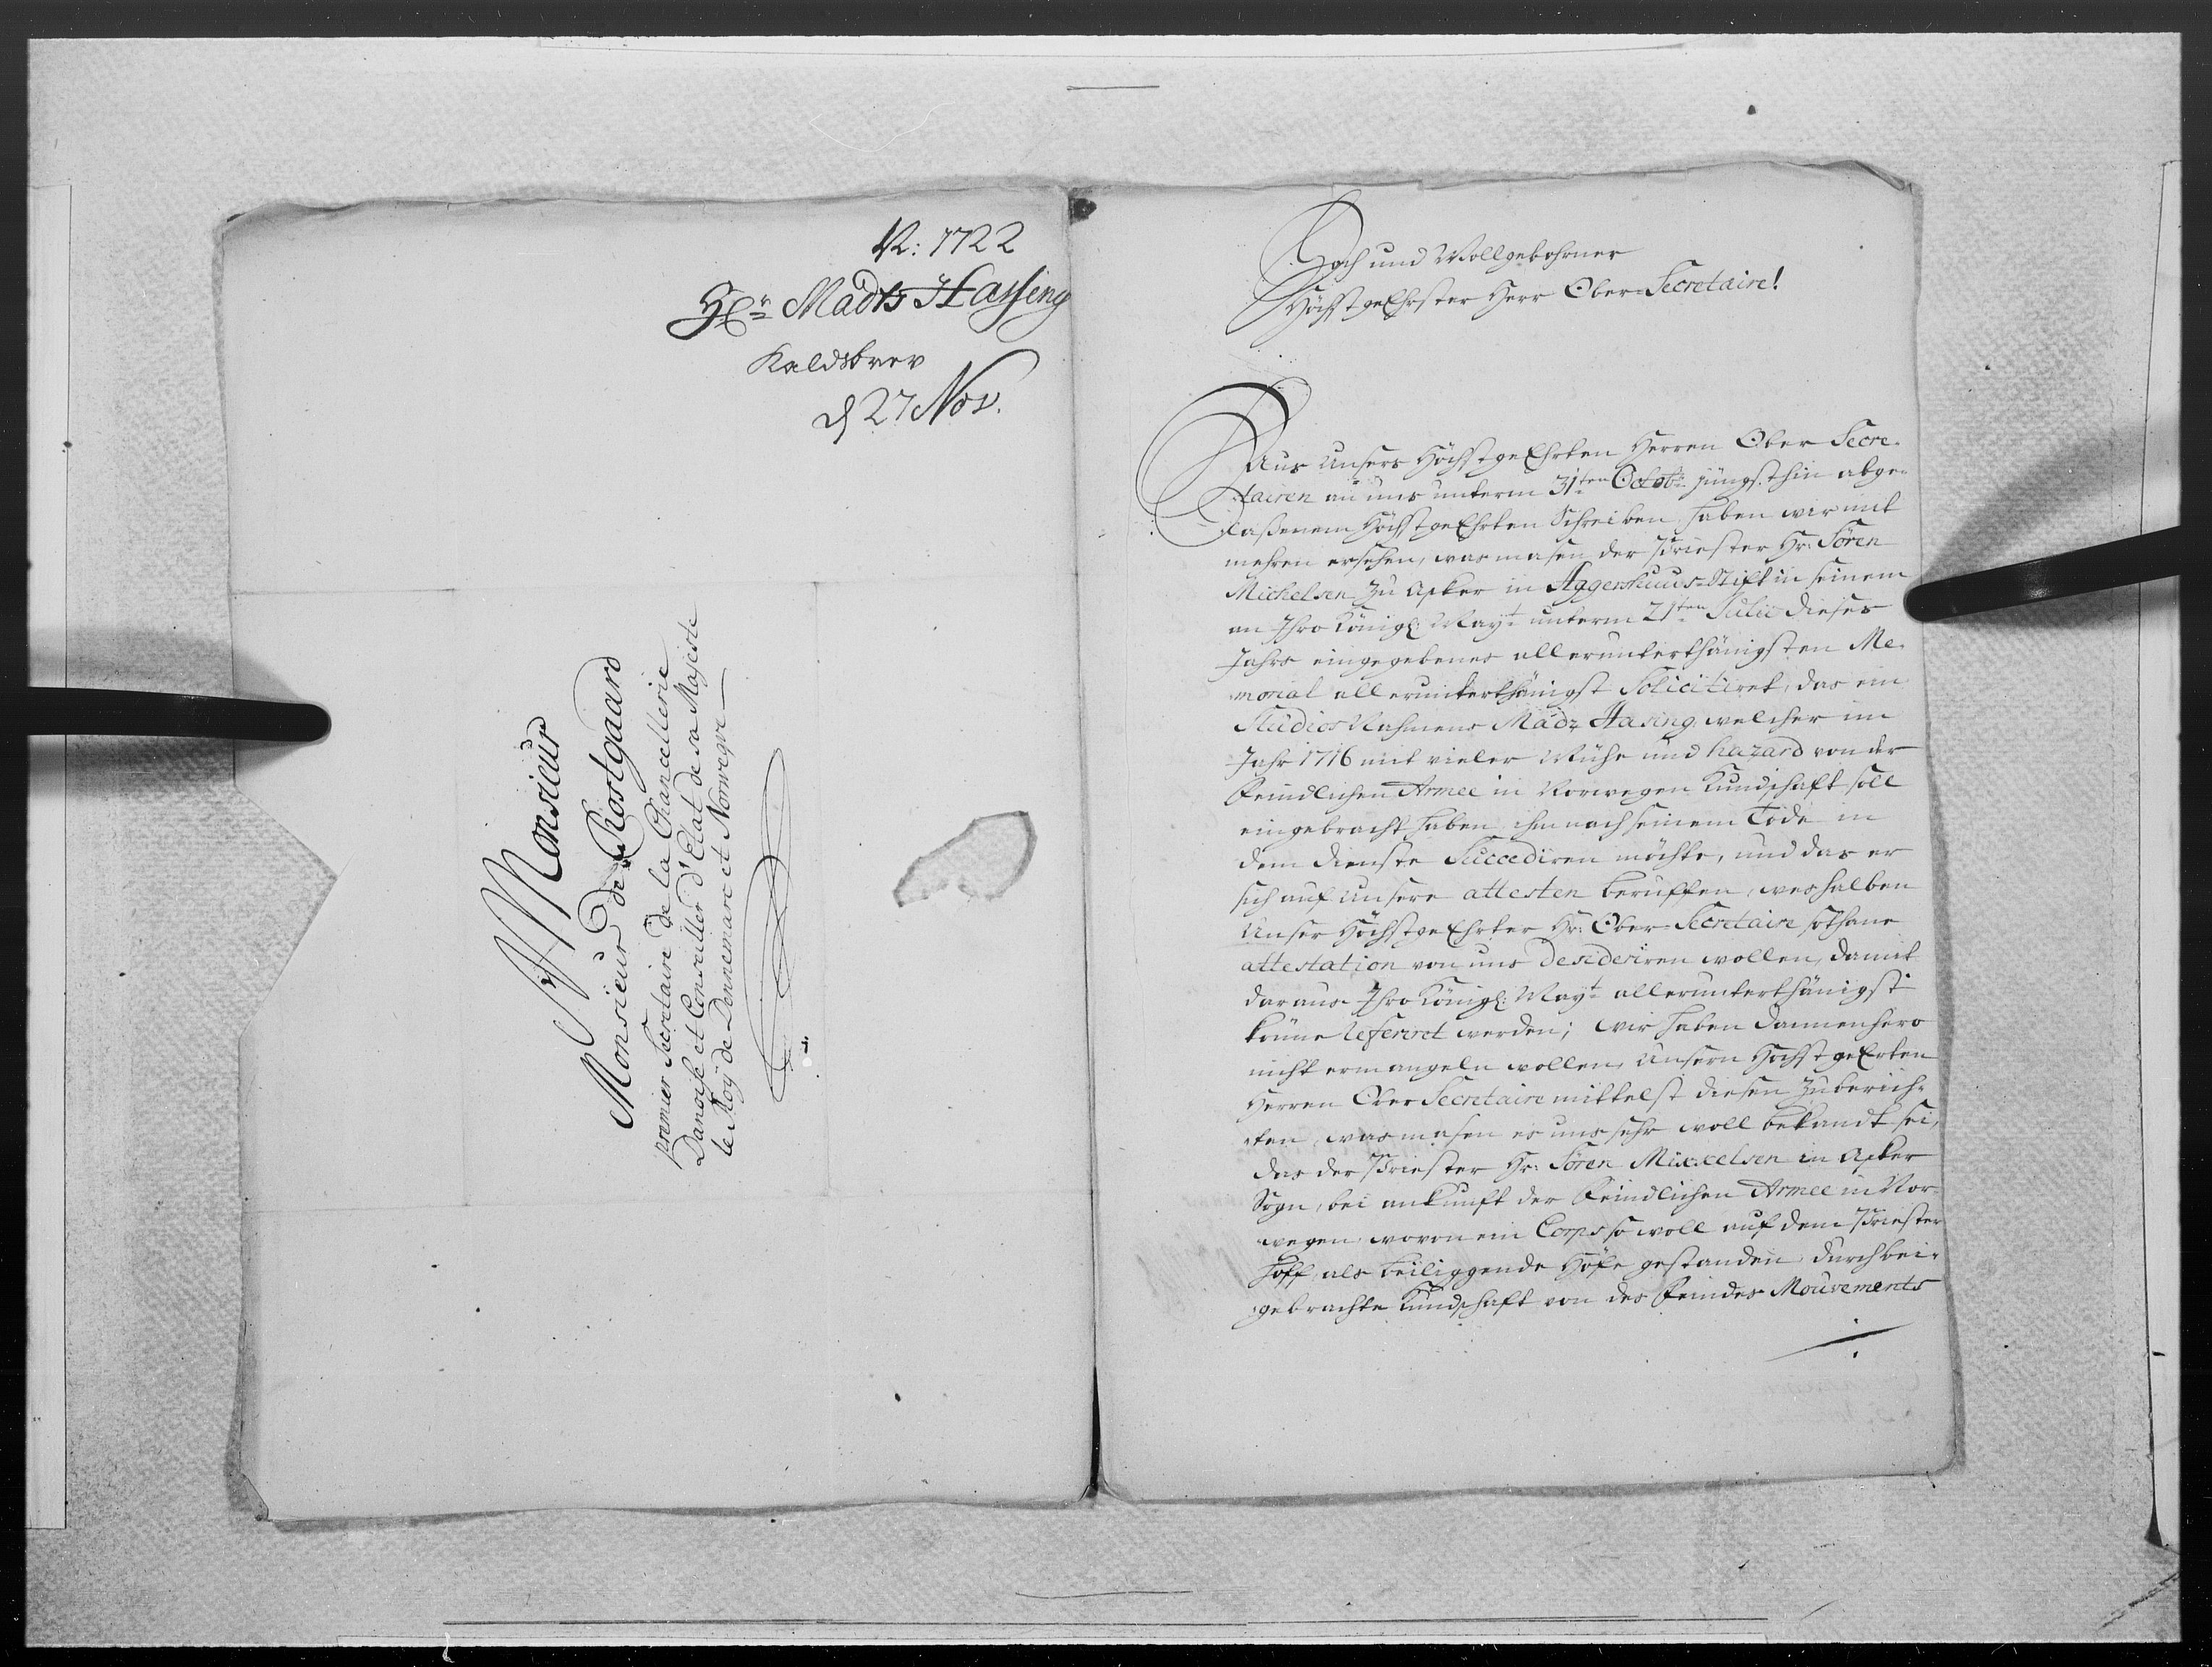 N: 1722
Hr Madts Hassing
Kaldsbrev
d 27 Nov.
A Monsieur
Monsieur de Rostgaard
premier Secretaire de la Chancellerie
Danoise et Conseiller d'Etat de sa Majeste
le Roÿ de Dennemarc et Norwegve
Hoch und Wollgebohrner
HöchstgeEhrster Herr Ober-Secretaire!
Aus Unsers HöchstgeEhrten Herren Ober Secre-
tairen an uns unterm 31ten Octobr: jüngsthin abge-
laßenem HöchstgeEhrten Schreiben haben wir mit
mehren ersehen, was masen der Priester Hr: Sören
Michelsen zu Asker in Aggershuus-Stift in seinem
an Ihro Königl: Mayt unterm 21ten Julii dieses
Jahrs eingegebenes allerunterthänigsten Me-
morial allerunterthänigst Solicitiret, das ein
Studios Nahmens Madz Hasing, welcher im
Jahr 1716 mit vieler Mühe und hazard von der
Feindlichen Armee in Norwegen Kundschaft soll
eingebracht haben ihm nach seinem Tode in
dem Dienste Succediren möchte, und das er
sich auf Unsere attesten beruffen, weshalben
Unser HöchstgeEhrter Hr: Ober-Secretaire sothane
attestation von uns desideriren wollen, damit
daraus Ihro Königl: Mayt allerunterthänigst
könne referiret werden; wir haben dannenhero
nicht ermangeln wollen, Unsern HöchstgeEhrten
Herren Ober Secretaire mittelst diesen zu berich-
ten, was masen es uns sehr woll bekandt sei,
das der Priester Hr: Sören Mixxelsen in Asker
Sogn, bei ankunft der Feindlichen Armee in Nor-
wegen, wovon ein Corps so woll auf dem Priester
hoff als beiliggende Höfe gestanden durch bei-
gebrachte Kundschaft von des Feindes Mouvements